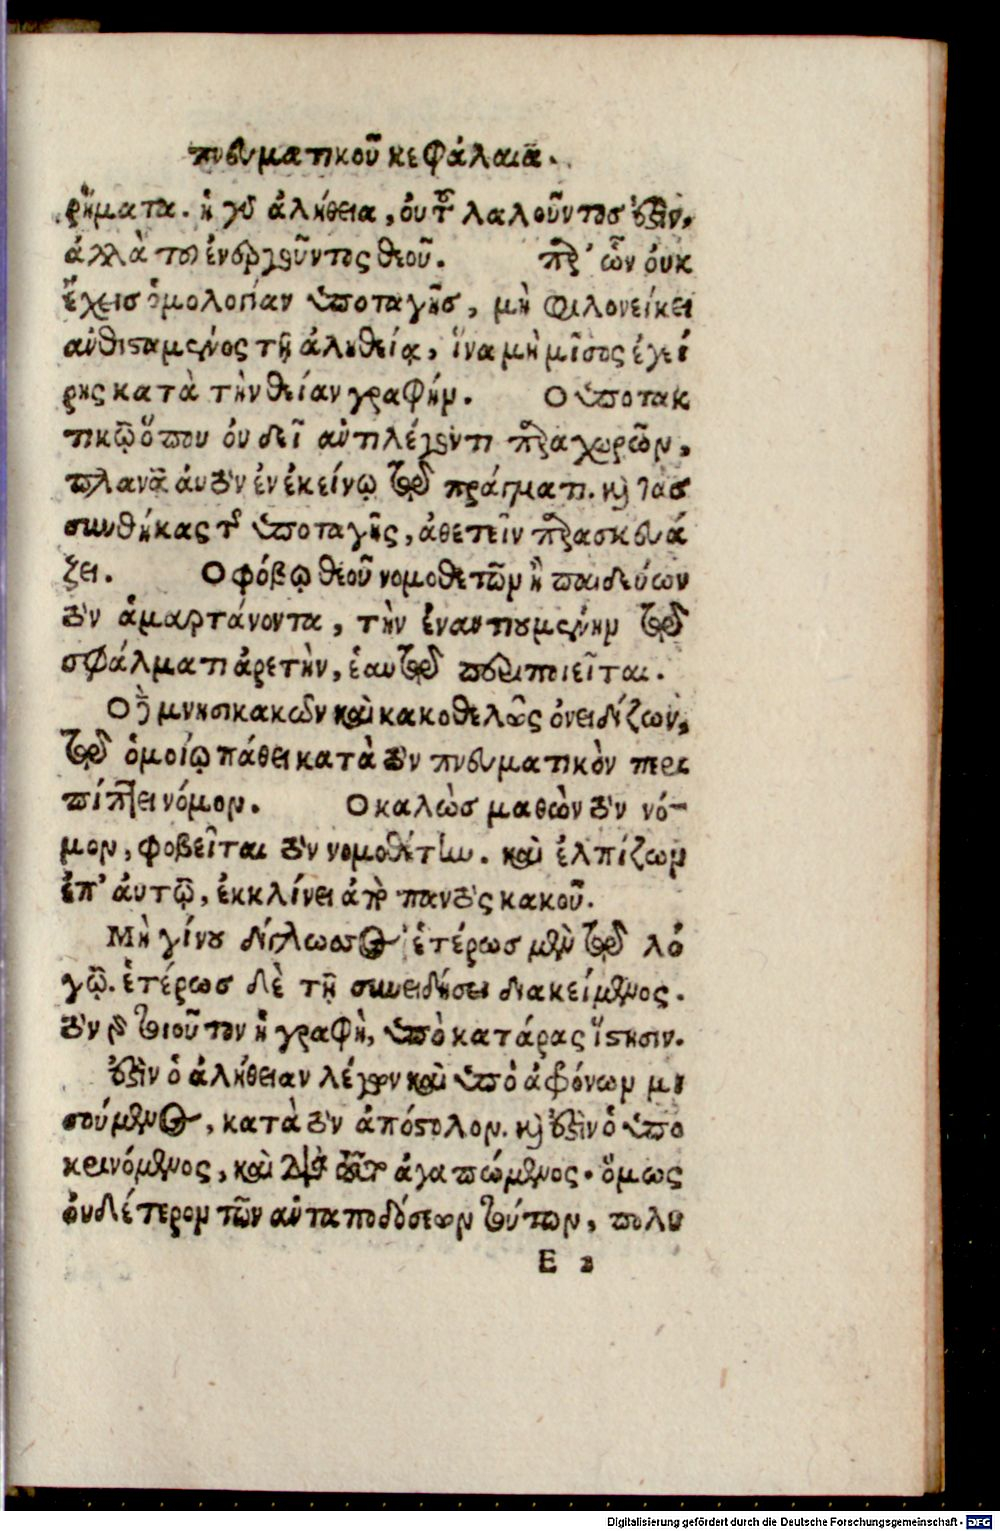 πνευματικοῦ κεφάλαια.
ρήματα. ἡ γὰρ ἀλήθεια, ὀυ τοῦ λαλοῦντοσ ἐστὶν,
ἀλλὰ τοῦ ἐνεργοῦντος θεοῦ. παρ' ὧν ὀυκ
ἔχεισ ὁμολογίαν ὑποταγῆσ, μὴ φιλονείκει
ἀνθισαμενος τῇ ἀληθείᾳ, ἵνα μὴ μῖσος ἐγεί
ρης κατὰ τὴν θείαν γραφήν. Ο ὑποτακ
τικῷ ὅπου ὀυ δεῖ ἀντιλέγοντι παραχωρῶν,
πλανᾶ ἀυτὸν ἐν ἐκείνῳ τῷ πράγματι. καὶ τὰσ
συνθήκας τῆς ὑποταγῆς, ἀθετεῖν παρασκευά
ζει. Ο φόβῳ θεοῦ νομοθετῶν ἢ παιδεύων
τὸν ἁμαρτάνοντα, τὴν ἐναντιουμενην τῷ
σφάλματι ἀρετὴν, ἑαυτῷ περιποιεῖται.
Ο δὲ μνησικακῶν καὶ κακοθελῶς ὀνειδίζων,
τῷ ὁμοίῳ πάθει κατὰ τὸν πνευματικὸν περι
πίπτει νόμον. Ο καλῶσ μαθὼν τὸν νό-
μον, φοβεῖται τὸν νομοθέτην. καὶ ἐλπίζων
ἐπ' ἀυτῷ, ἐκκλίνει ἀπὸ παντὸς κακοῦ.
Μὴ γίνου δίγλωσσος ἑτέρωσ μὲν τῷ λό
γῳ. ἑτέρωσ δὲ τῇ συνειδήσει διακείμενος.
τὸν γὰρ τοιοῦτον ἡ γραφὴ, ὑπὸ κατάρας ἵστησιν.
ἐστὶν ὁ ἀλήθειαν λέγων καὶ ὑπὸ ἀφόνων μι
σούμενος, κατὰ τὸν ἀπόστολον. καὶ ἐστὶν ὁ ὑπο
κρινόμενος, καὶ διὰ τοῦτο ἀγαπώμενος. ὅμως
ὀυδέτερον τῶν ἀνταποδόσεων τούτων, πολυ
E 2
Digitalisierung gefördert durch die Deutsche Forschungsgemeinschaft - DFG